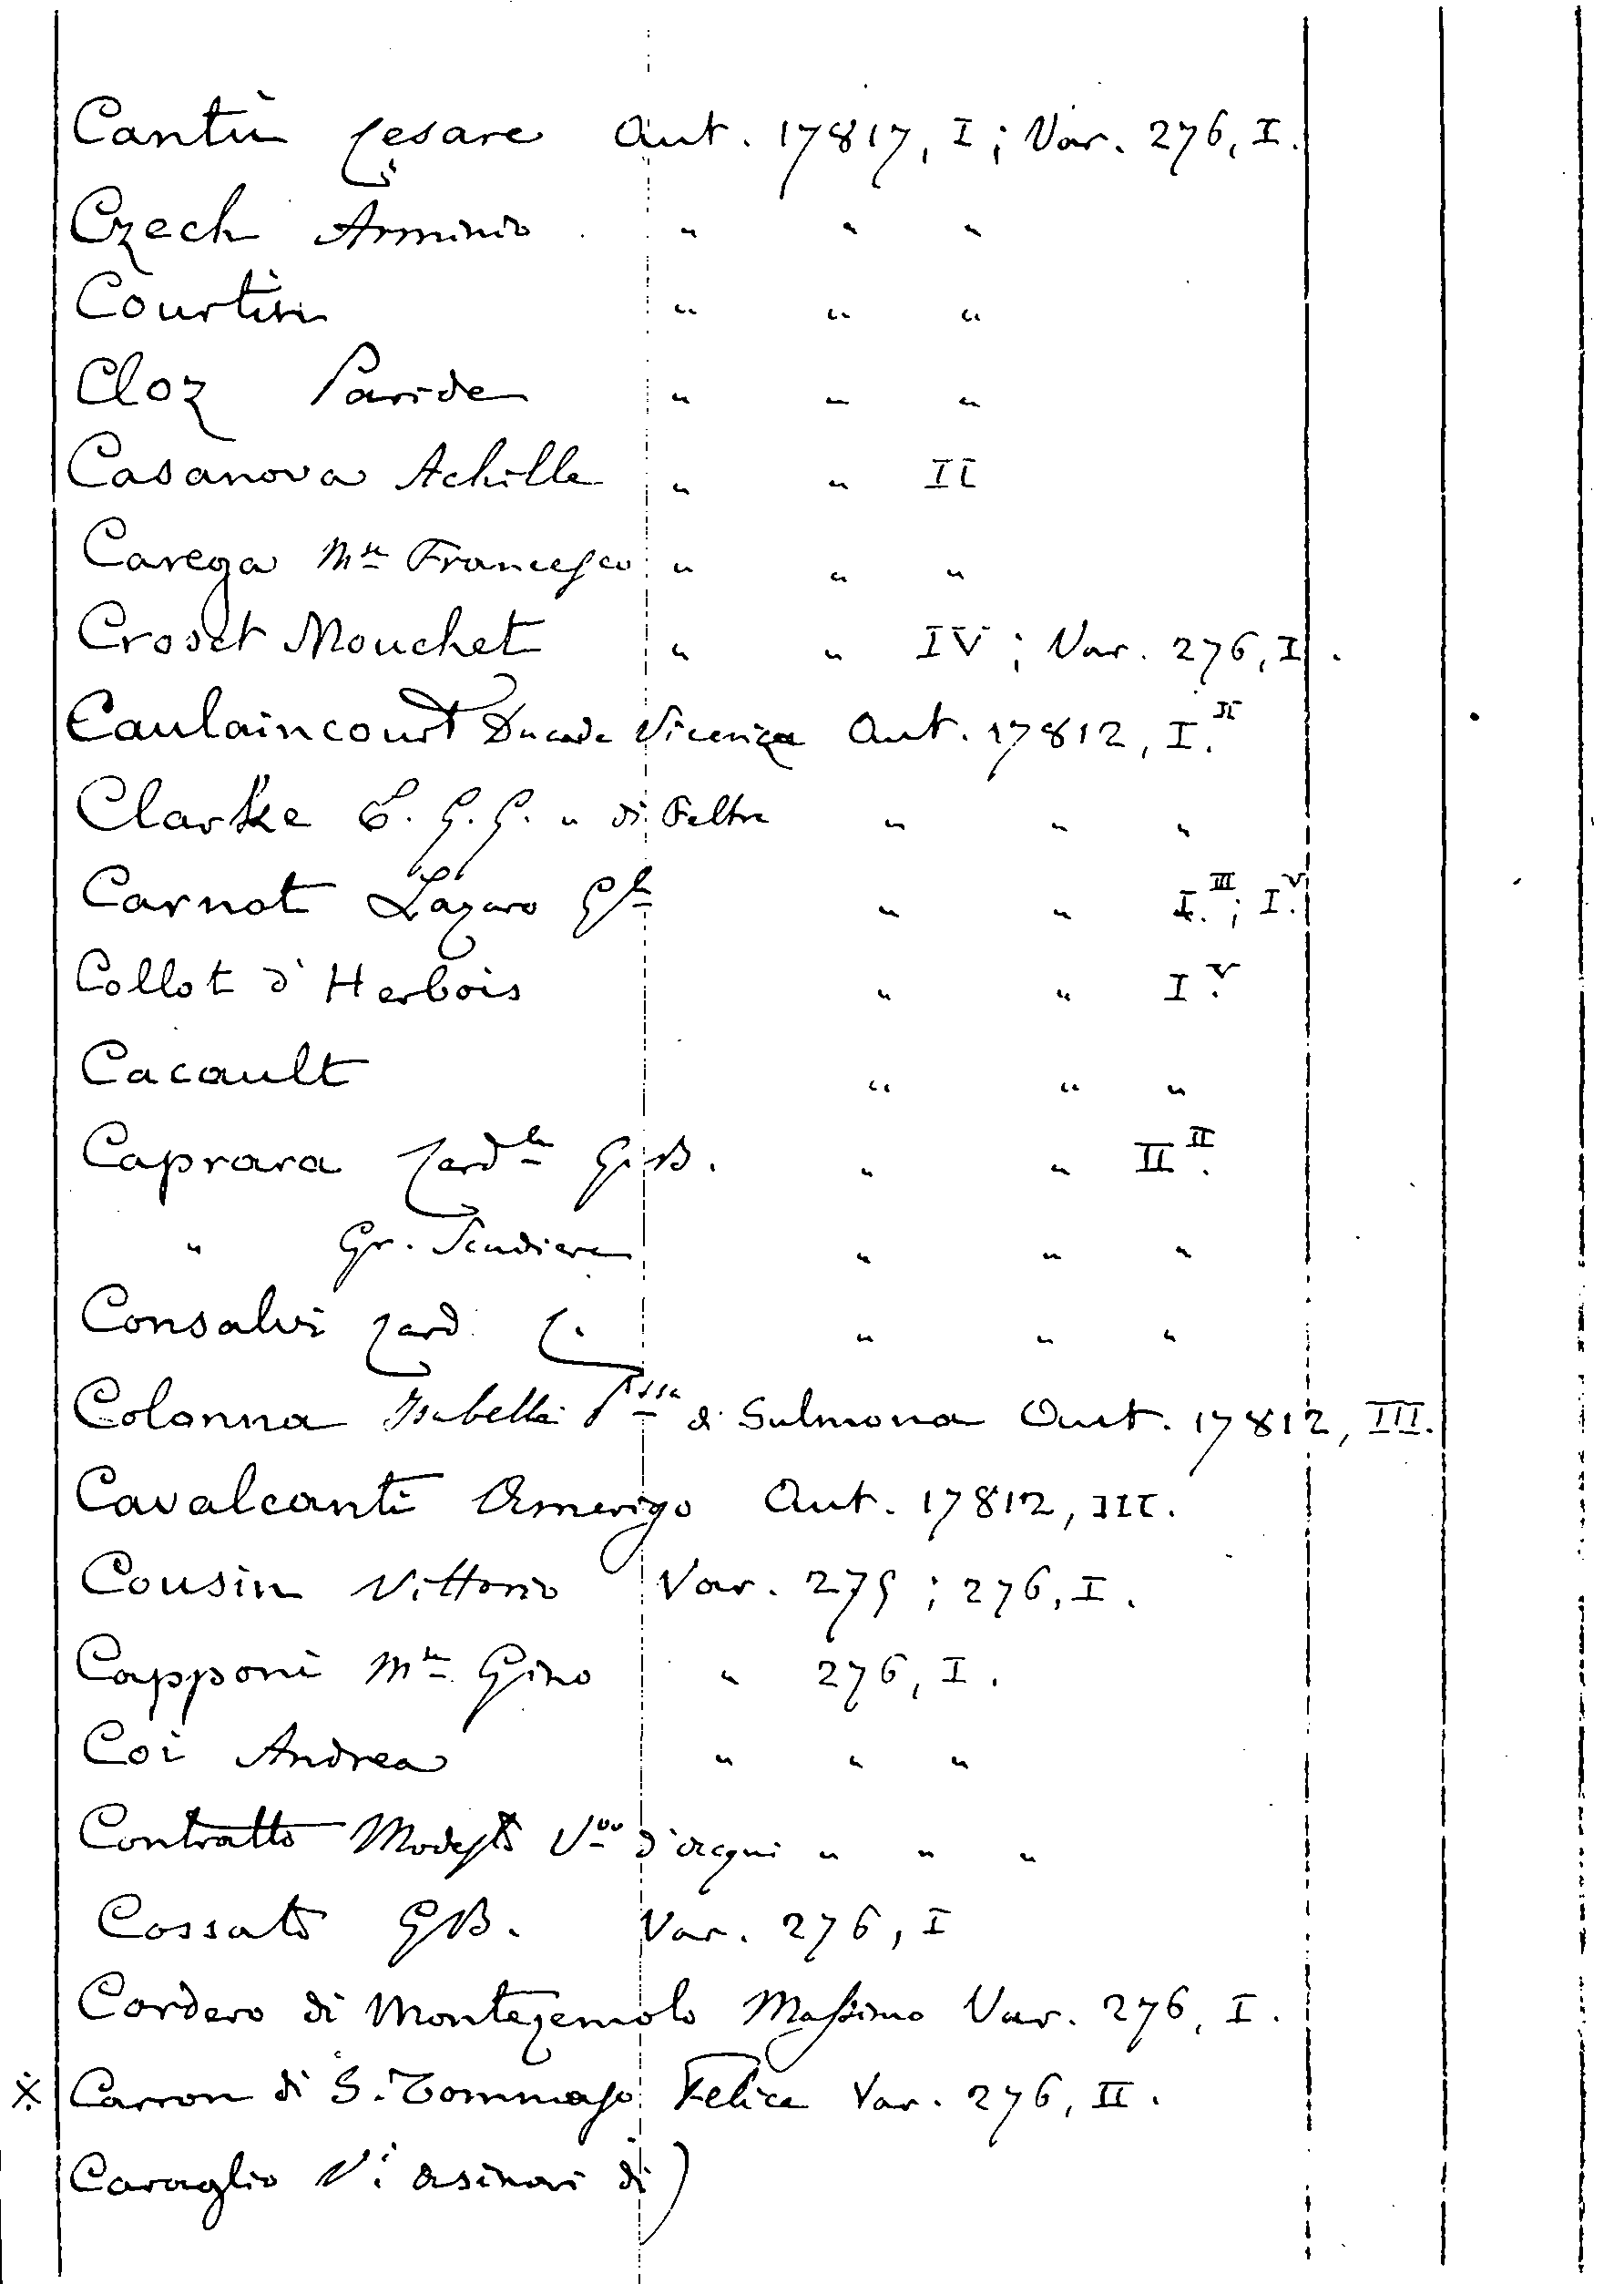 Cantù Cesare Aut. 17817, I; Var. 276, I.
Czech Arminio " " "
Courtin " " "
Cloz Paride " " "
Casanova Achille " " II
Carega Mse Francesco " " "
Croset Mouchet " " IV; Var. 276, I.
Caulaincourt Duca de Vicenza Aut. 17812, I.II
Clarke E. G. G. " di Feltre " " "
Carnot Lazaro Gle " " I.III; I.V
Collot d'Herbois " " I.V
Cacault " " "
Caprara Cardle G. B. " " II.II
" Gr. Scudiere " " "
Consalvi Card. C. " " "
Colonna Isabella Pssa di Sulmona Aut. 17812, III.
Cavalcanti Amerigo Aut. 17812, III.
Cousin Vittorio Var. 275; 276, I.
Capponi Mse Gino " 276, I.
Coi Andrea " " "
Contratto Modesto Vvo d'Acqui " " "
Cossato GB. Var. 276, I
Cordero di Montezemolo Massimo Var. 276, I.
※ Carron di S. Tommaso Felice Var. 276, II.
Caraglio V. Asinari di)